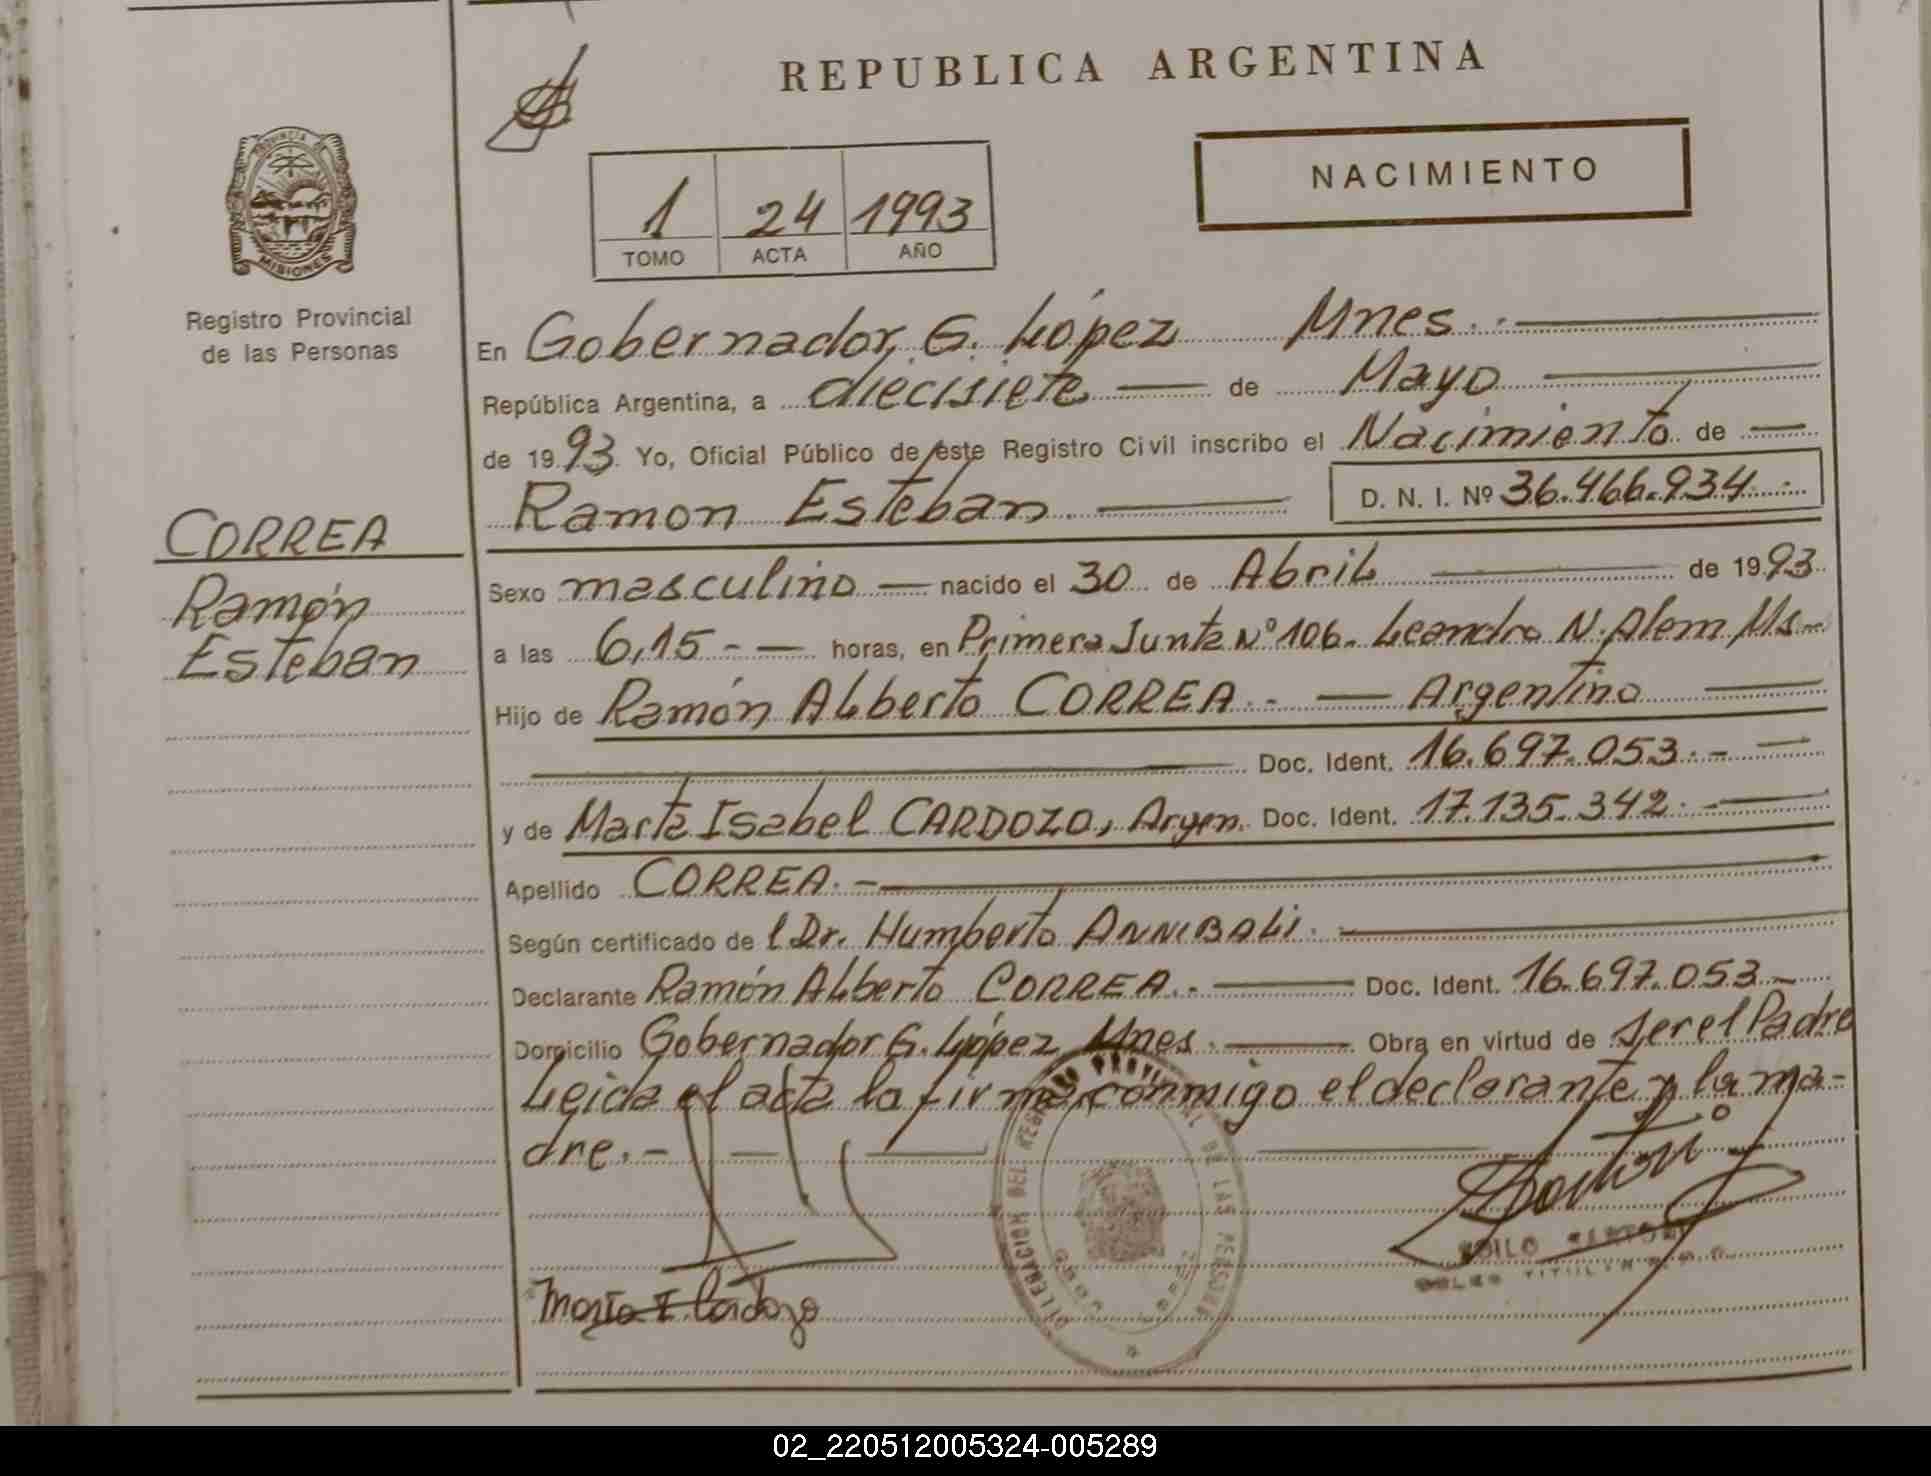 REPUBLICA ARGENTINA
NACIMIENTO
1 24 1993
TOMO ACTA AÑO
PROVINCIA DE
MISIONES
Registro Provincial
de las Personas
CORREA
Ramón
Esteban
En Gobernador G. López Mnes.
República Argentina, a diecisiete de Mayo
de 1993. Yo, Oficial Público de este Registro Civil inscribo el Nacimiento de
Ramon Esteban. D. N. I. Nº 36.466.934.-
Sexo masculino nacido el 30 de Abril de 1993
a las 6,15 - horas, en Primera Junta Nº 106. Leandro N. Alem Ms.
Hijo de Ramón Alberto CORREA.- Argentino
Doc. Ident. 16.697.053.-
y de Marta Isabel CARDOZO, Argen. Doc. Ident. 17.135.342.-
Apellido CORREA.-
Según certificado de l Dr. Humberto ANNIBALI.
Declarante Ramón Alberto CORREA.- Doc. Ident. 16.697.053.-
Domicilio Gobernador G. López Mnes. Obra en virtud de ser el Padre
Leida el acta la firma conmigo el declarante y la ma-
dre.-
DEL REGISTRO PROVINCIAL DE LAS PERSONAS
GDOR. LOPEZ
Marta I. Cardozo
02_220512005324-005289